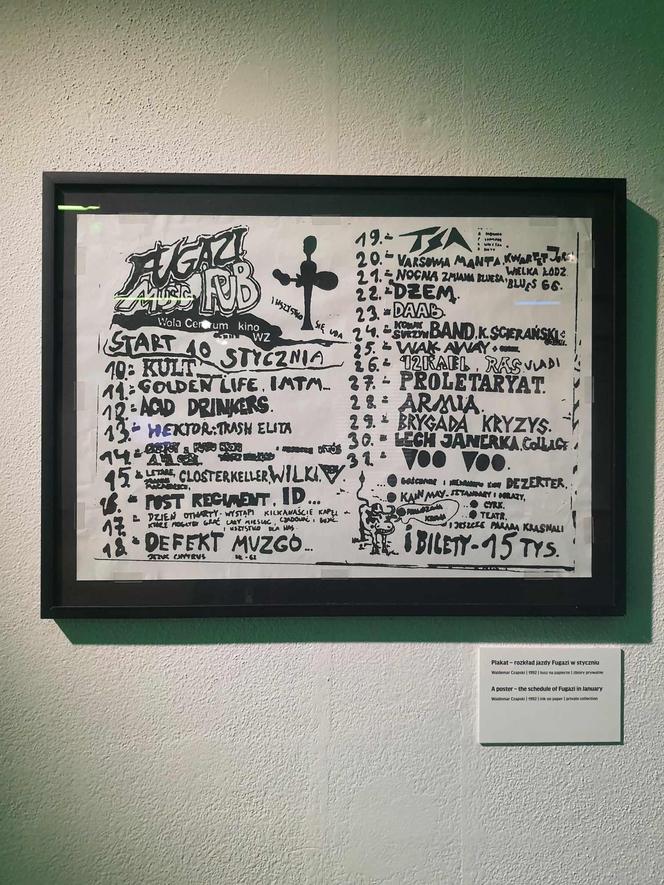 FUGAZI
MUSIC PUB
Wola Centrum kino
WZ
I WSZYSTKO SIĘ UDA
START 10 STYCZNIA
10.- KULT
11.- GOLDEN LIFE, IMTM...
12.- ACID DRINKERS.
13.- HEKTOR, TRASH ELITA
14.-
15.- CLOSTERKELLER, WILKI,
16.- POST REGIMENT, ID...
17.- DZIEŃ OTWARTY - WYSTĄPI KILKANAŚCIE KAPEL
KTÓRE MOGŁYBY GRAĆ CAŁY MIESIĄC,
I WSZYSTKO DLA WAS
18.- DEFEKT MUZGO...
19.- TSA
20.- VARSOVIA MANTA, KWARTET
21.- NOCNA ZMIANA BLUESA, WIELKA ŁÓDŹ, BLUES 66.
22.- DŻEM.
23.- DAAB.
24.- BAND, K. ŚCIERAŃSKI
25.- WAK AWAY
26.- IZRAEL, RAS VLADI
27.- PROLETARYAT.
28.- ARMIA
29.- BRYGADA KRYZYS.
30.- LECH JANERKA,
31. VOO VOO.
DEZERTER.
KAIN MAY, SZTANDARY I OBRAZY,
CYRK.
TEATR.
I JESZCZE PARADA
I BILETY - 15 TYS.
Plakat – rozkład jazdy Fugazi w styczniu
Waldemar Czapski | 1992 | tusz na papierze | zbiory prywatne
A poster – the schedule of Fugazi in January
Waldemar Czapski | 1992 | ink on paper | private collection